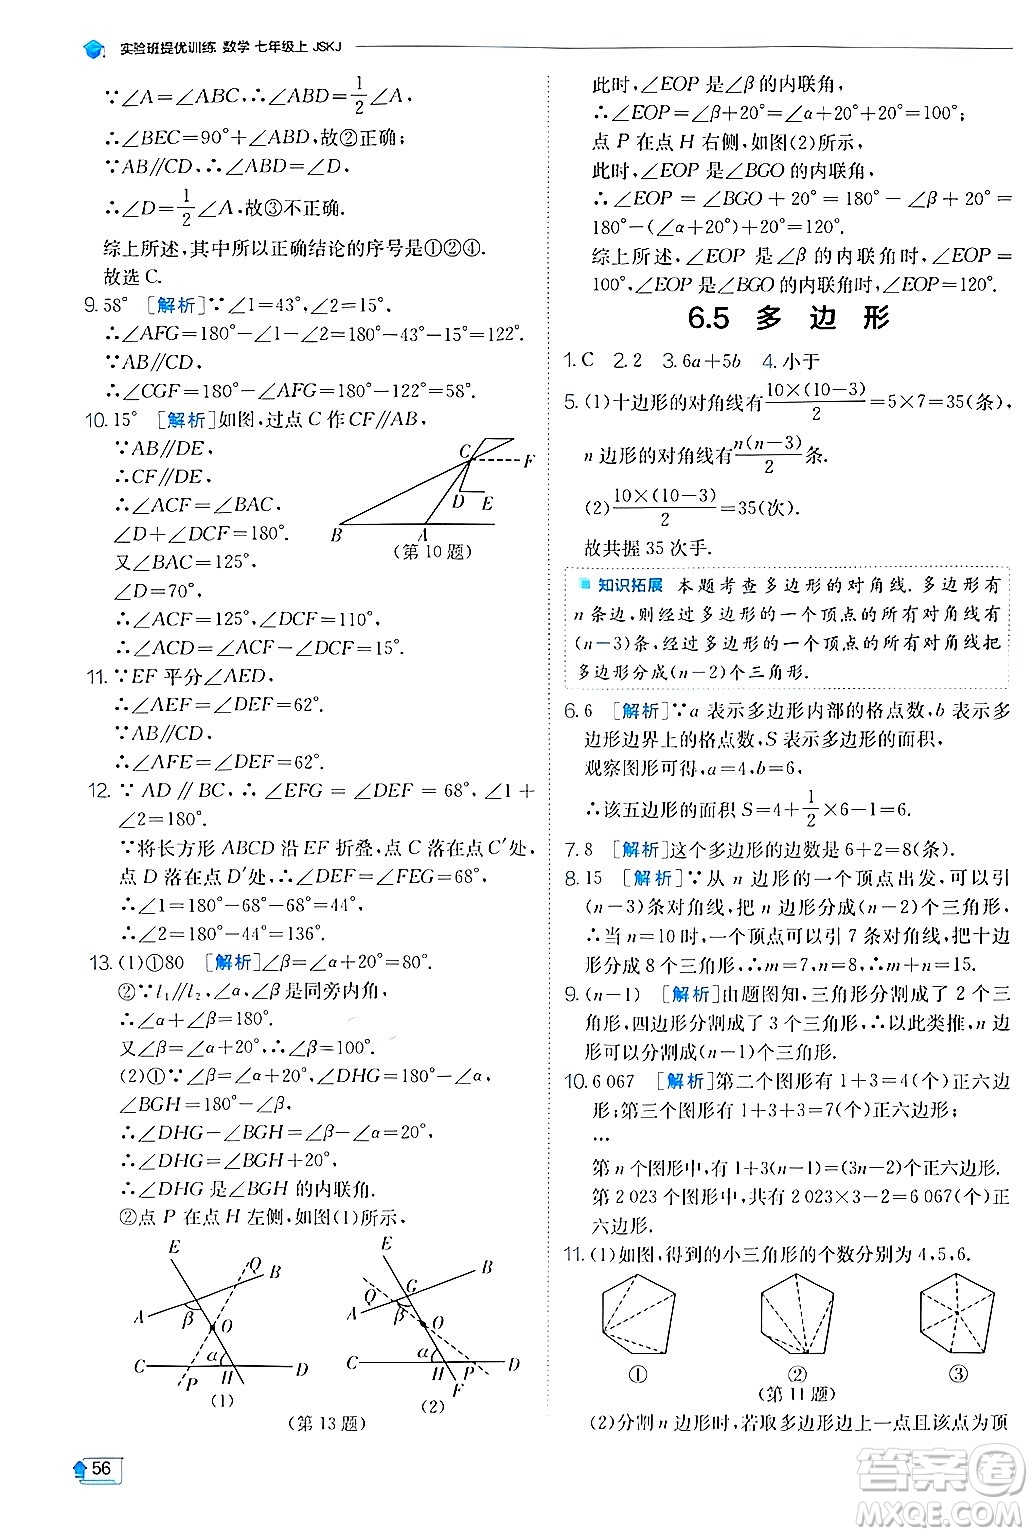 实验班提优训练 数学 七年级上 JSKJ
∵∠A=∠ABC,∴∠ABD=1/2∠A,
∴∠BEC=90°+∠ABD,故②正确.
∵AB∥CD,∴∠ABD=∠D,
∴∠D=1/2∠A,故③不正确.
综上所述,其中所以正确结论的序号是①②④.
故选C.
9.58° [解析]∵∠1=43°,∠2=15°.
∴∠AFG=180°-∠1-∠2=180°-43°-15°=122°.
∵AB∥CD,
∴∠CGF=180°-∠AFG=180°-122°=58°.
10.15° [解析]如图,过点C作CF∥AB,
∵AB∥DE,
∴CF∥DE,
∴∠ACF=∠BAC,
∠D+∠DCF=180°.
又∠BAC=125°,
∠D=70°,
∴∠ACF=125°,∠DCF=110°,
∴∠ACD=∠ACF-∠DCF=15°.
C
F
D
E
B
A
(第10题)
11.∵EF平分∠AED,
∴∠AEF=∠DEF=62°.
∵AB∥CD,
∴∠AFE=∠DEF=62°.
12.∵AD∥BC,∴∠EFG=∠DEF=68°,∠1+
∠2=180°.
∵将长方形ABCD沿EF折叠,点C落在点C′处,
点D落在点D′处,∴∠DEF=∠FEG=68°,
∴∠1=180°-68°-68°=44°,
∴∠2=180°-44°=136°.
13.(1)①80 [解析]∠β=∠1+20°=80°.
②∵l₁∥l₂,∠α,∠β是同旁内角,
∴∠α+∠β=180°.
又∠β=∠α+20°,∴∠β=100°.
(2)①∵∠β=∠α+20°,∠α=∠DHG,
∠BGH=180°-∠β,
∴∠DHG-∠BGH=∠β-∠α=20°,
∴∠DHG=∠BGH+20°,
∴∠DHG是∠BGH的内联角.
②点P在点H左侧,如图(1)所示,
E
Q
B
A
β
O
α
C
P
H
D
(1)
E
Q
G
B
A
β
O
α
C
H
P
D
F
(2)
(第13题)
此时,∠EOP是∠β的内联角,
∴∠EOP=∠β+20°=∠α+20°+20°=100°;
点P在点H右侧,如图(2)所示,
此时,∠EOP是∠BGO的内联角,
∴∠EOP=∠BGO+20°=180°-∠β+20°=
180°-(∠α+20°)+20°=120°.
综上所述,∠EOP是∠β的内联角时,∠EOP=
100°,∠EOP是∠BGO的内联角时,∠EOP=120°.
6.5 多 边 形
1.C 2.2 3.6a+5b 4.小于
5.(1)十边形的对角线有10×(10-3)/2=5×7=35(条),
n边形的对角线有n(n-3)/2条.
(2)10×(10-3)/2=35(次).
故共握35次手.
知识拓展 本题考查多边形的对角线.多边形有
n条边,则经过多边形的一个顶点的所有对角线有
(n-3)条,经过多边形的一个顶点的所有对角线把
多边形分成(n-2)个三角形.
6.6 [解析]∵a表示多边形内部的格点数,b表示多
边形边界上的格点数,S表示多边形的面积,
观察图形可得,a=4,b=6,
∴该五边形的面积S=4+1/2×6-1=6.
7.8 [解析]这个多边形的边数是6+2=8(条).
8.15 [解析]∵从n边形的一个顶点出发,可以引
(n-3)条对角线,把n边形分成(n-2)个三角形,
∴当n=10时,从一个顶点可以引7条对角线,把十边
形分成8个三角形,∴m=7,n=8,∴m+n=15.
9.(n-1) [解析]由题图知,三角形分割成了2个三
角形,四边形分割成了3个三角形,∴以此类推,n边
形可以分割成(n-1)个三角形.
10.6 067 [解析]第二个图形有1+3=4(个)正六边
形;第三个图形有1+3+3=7(个)正六边形;
…
第n个图形中,有1+3(n-1)=(3n-2)个正六边形.
第2 023个图形中,共有2 023×3-2=6 067(个)正
六边形.
11.(1)如图,得到的小三角形的个数分别为4,5,6.
①
②
③
(第11题)
(2)分割n边形时,若取多边形边上一点且该点为顶
56
答案圈
MXQE.COM